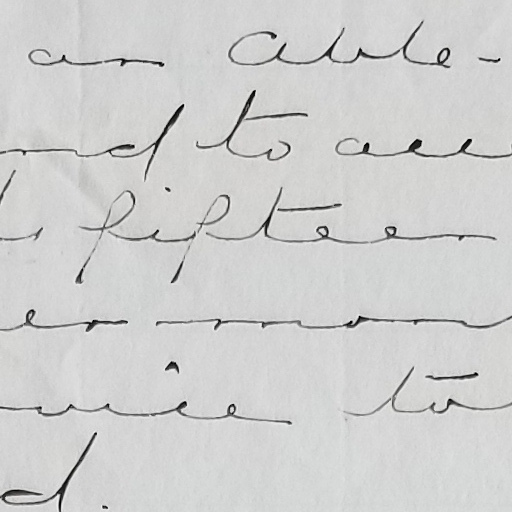 an Able-
nd to
fifteen
er mon
vice to
d.